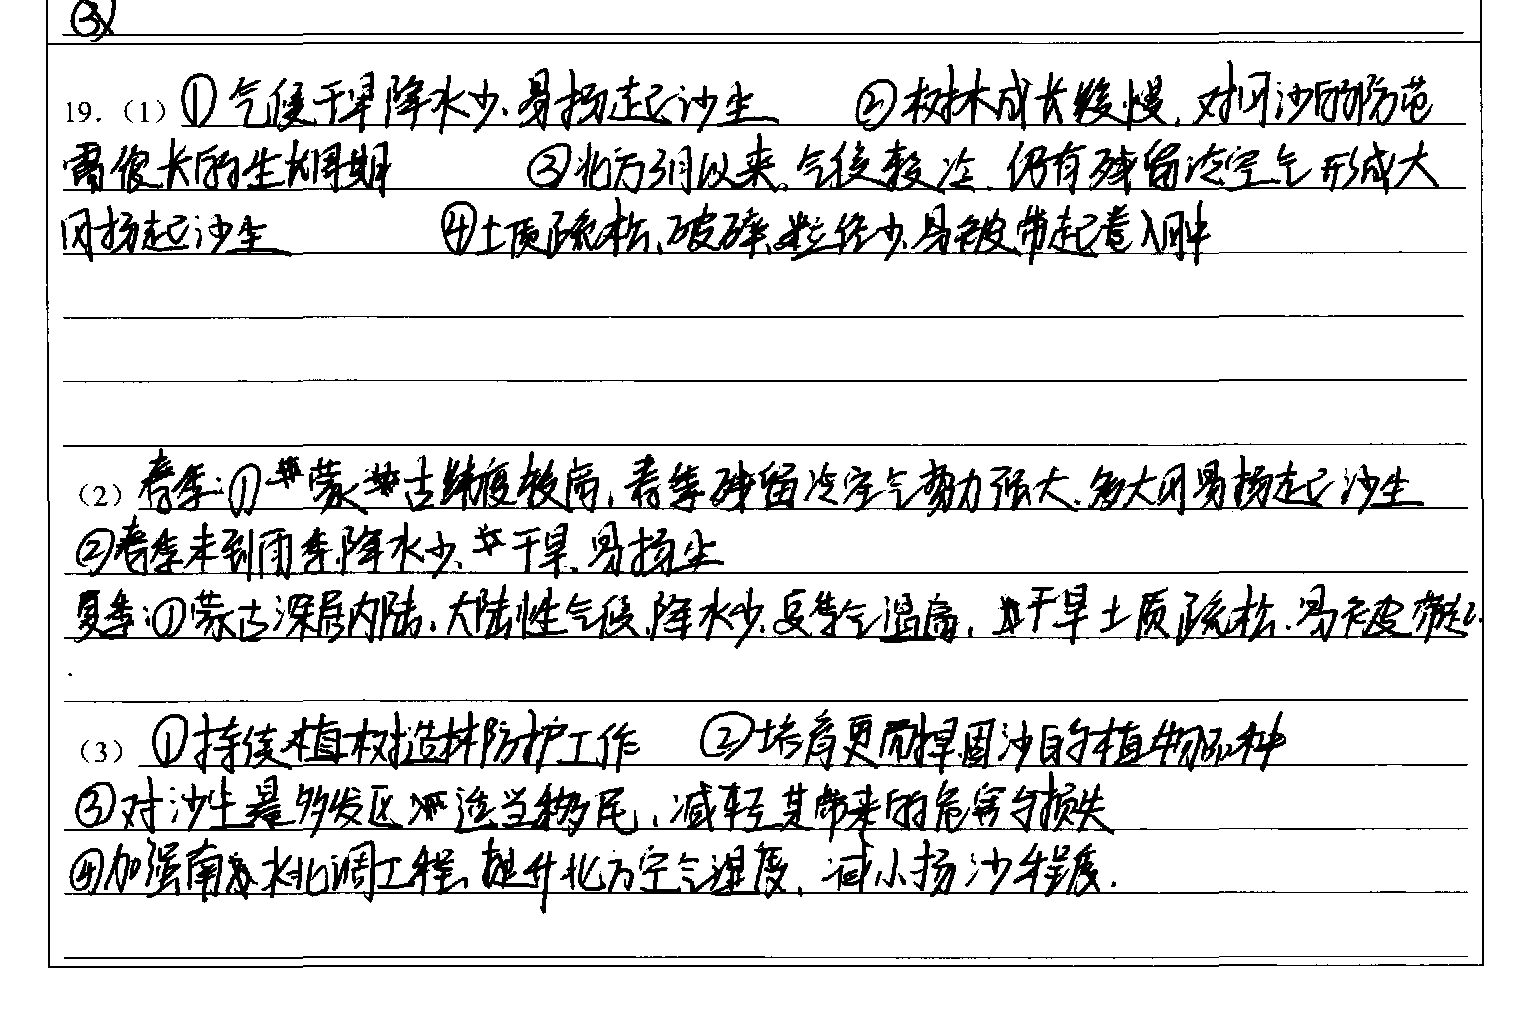 ③
19.（1）①气候干旱降水少、易扬起沙尘 ②树木成长较慢，对风沙的防范
需很长的生长周期 ③北方3月以来，气候较冷、仍有残留冷空气形成大
风扬起沙尘 ④土质疏松、破碎、粒径少、易被带起卷入风中
（2）春季：①蒙古纬度较高，春季残留冷空气势力强大、多大风易扬起沙尘
②春季未到雨季、降水少、干旱、易扬尘
夏季：①蒙古深居内陆，大陆性气候、降水少、夏季气温高，干旱土质疏松、易被带起
（3）①持续植树造林防护工作 ②培育更耐旱固沙的植物品种
③对沙尘暴多发区适当移民，减轻其带来的危害与损失
④加强南水北调工程、提升北方空气湿度，减小扬沙程度.